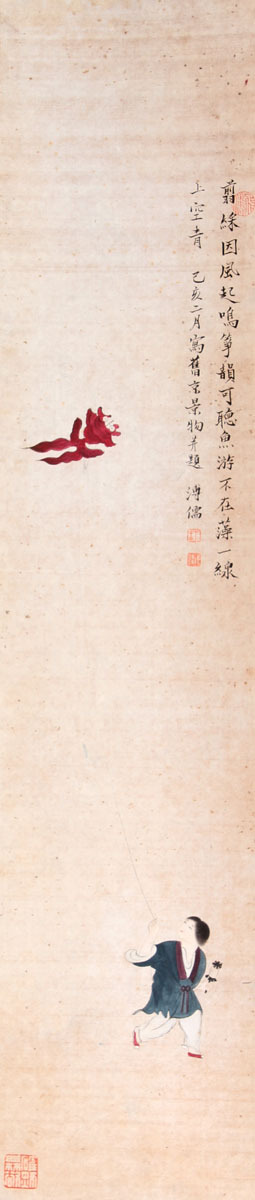 翦綵因風起鳴箏韻可聽魚游不在藻一線
上空青 己亥二月寫舊京景物并題 溥儒